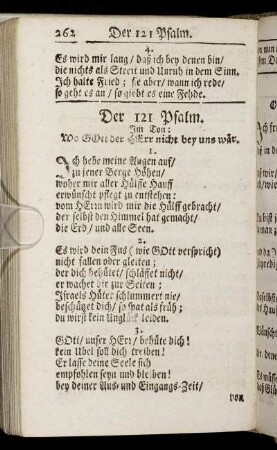 262 Der 121 Psalm.
4.
Es wird mir lang / daß ich bey denen bin /
die nichts als Streit und Unruh in dem Sinn.
Ich halte Fried; sie aber / wann ich rede /
so geht es an / so giebt es eine Fehde.
Der 121 Psalm.
Im Ton:
Wo GOtt der HErr nicht bey uns wär.
1.
Ich hebe meine Augen auf /
zu jener Berge Höhen /
woher mir aller Hülffe Hauff
erwünscht pflegt zu entstehen:
vom HErrn wird mir die Hülff gebracht /
der selbst den Himmel hat gemacht /
die Erd / und alle Seen.
2.
Es wird dein Fus (wie GOtt verspricht)
nicht fallen oder gleiten;
der dich behütet / schläffet nicht /
er wachet dir zur Seiten;
Israels Hüter schlummert nie /
beschützt dich / so spat als früh;
du wirst kein Unglück leiden.
3.
GOtt / unser HErr / behüte dich!
kein Ubel soll dich treiben!
Er lasse deine Seele sich
empfohlen seyn und bleiben!
bey deiner Aus- und Eingangs-Zeit /
von